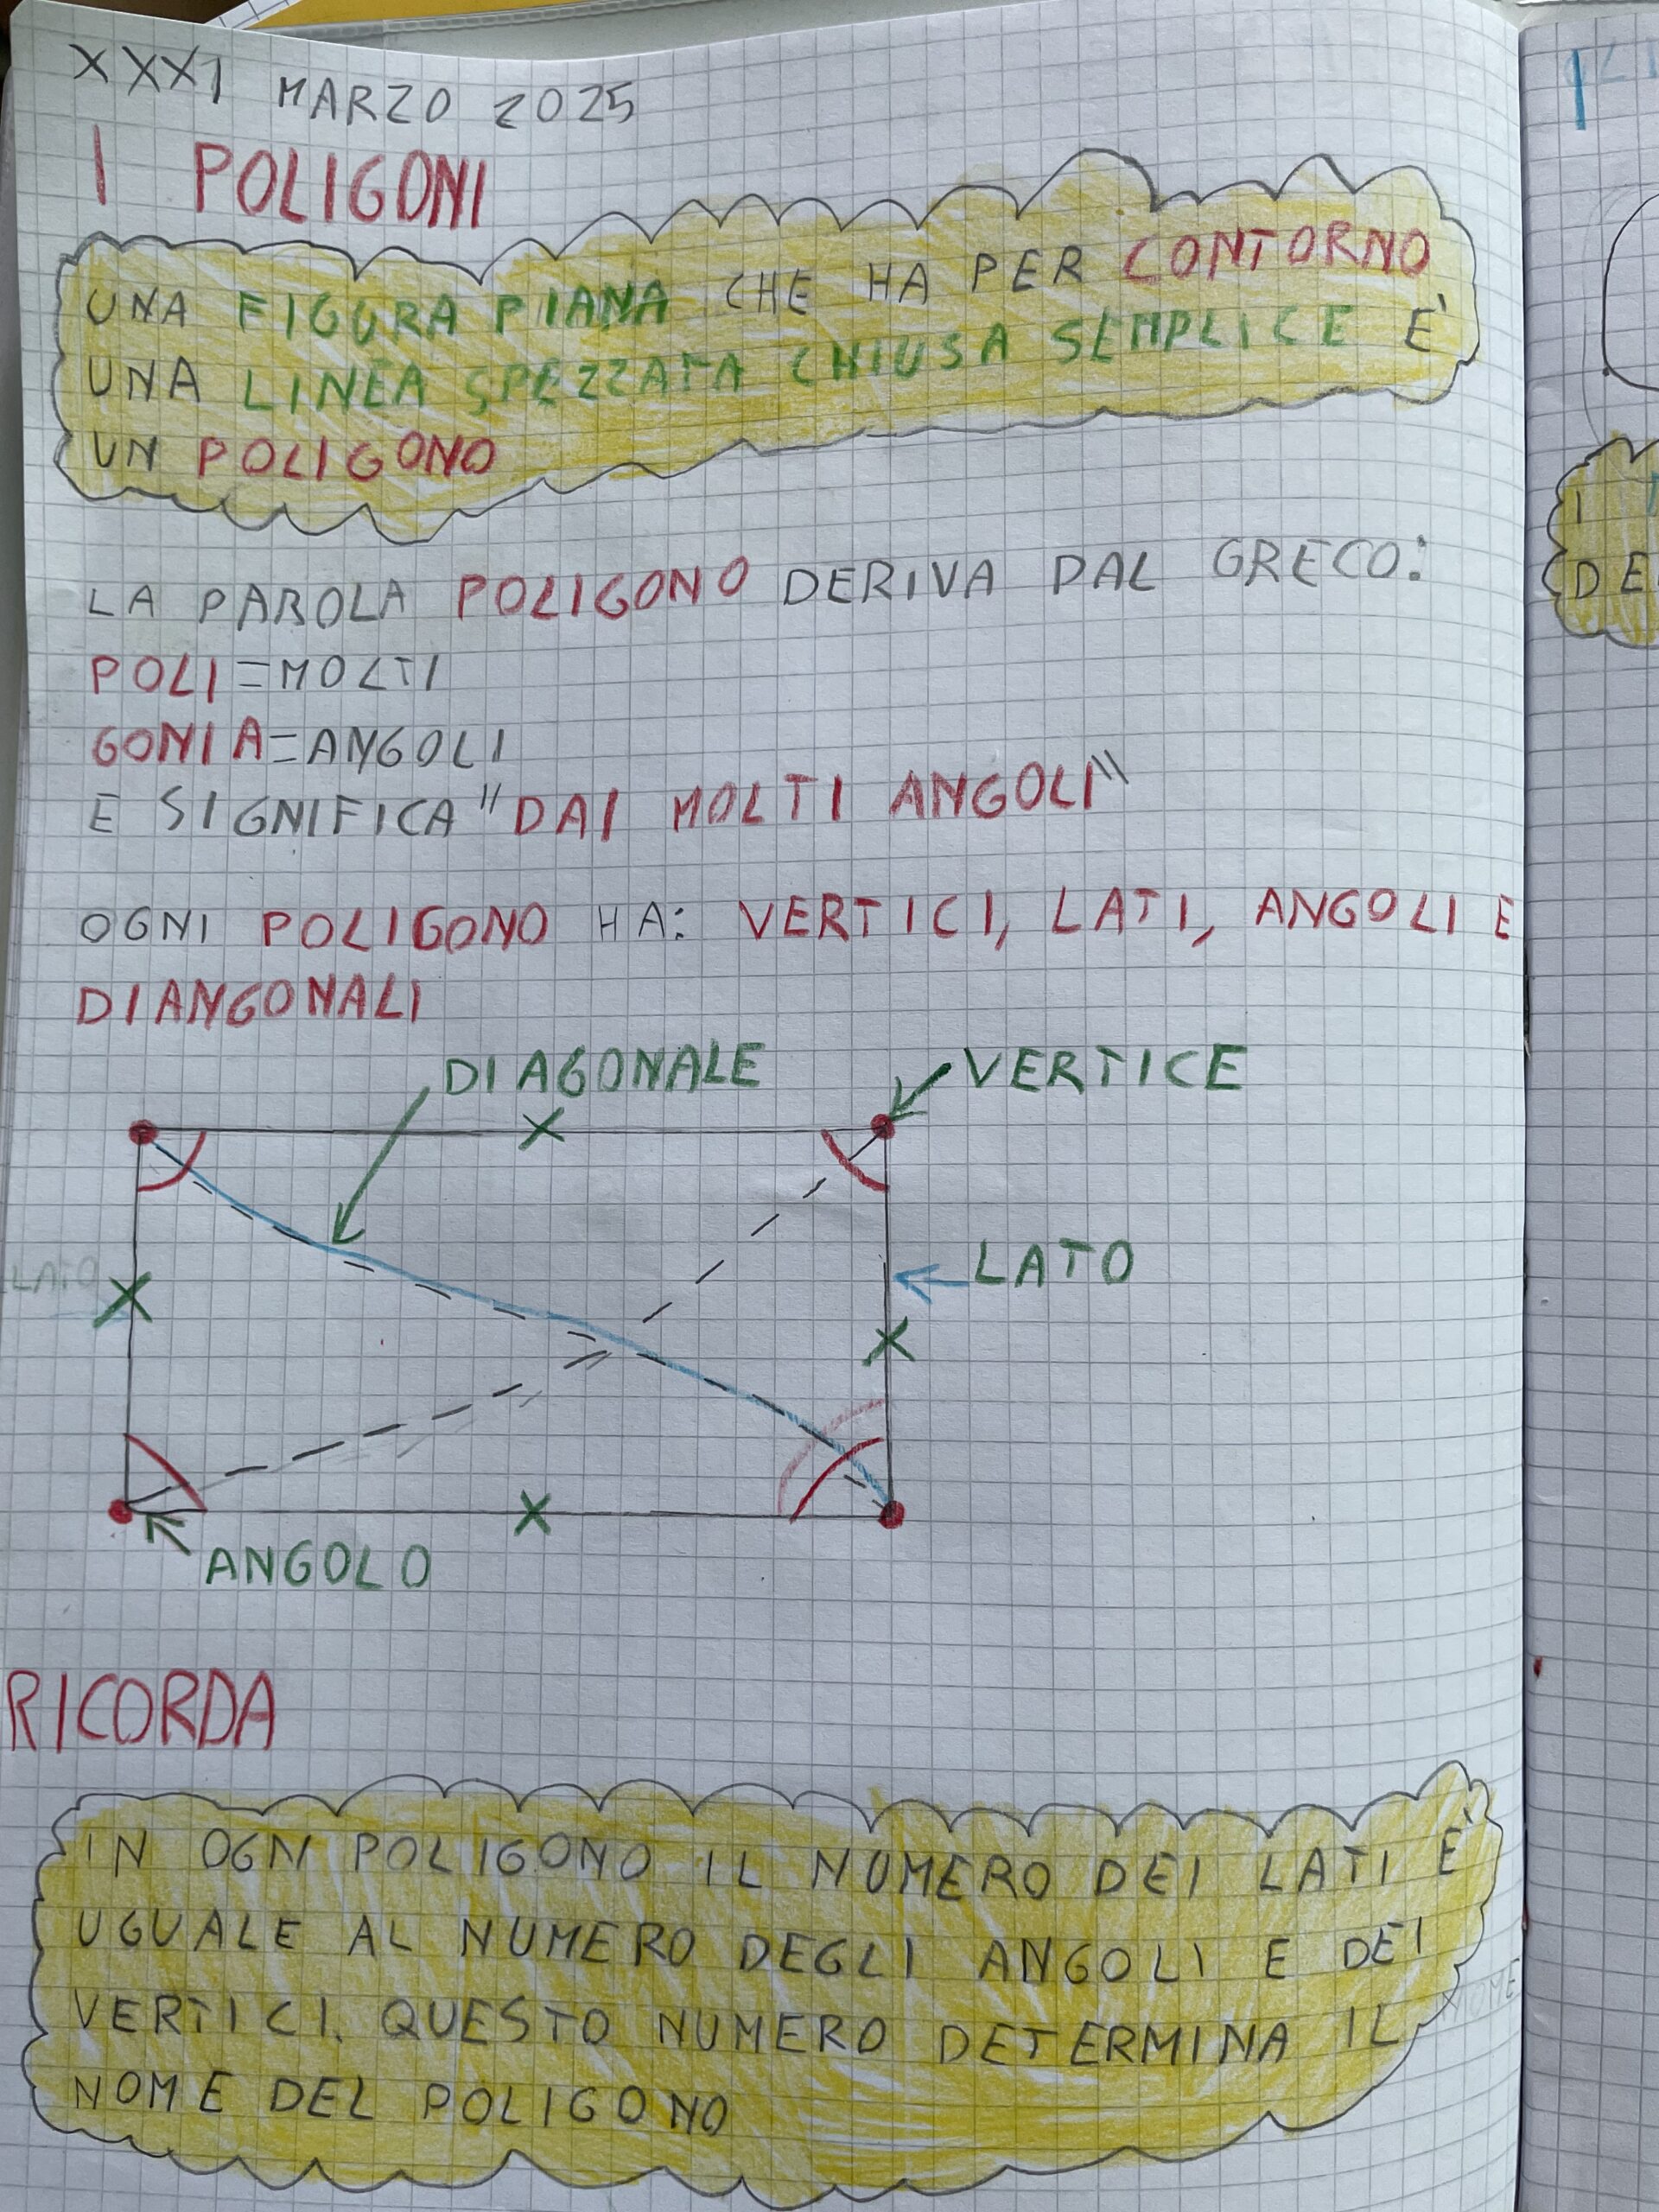 XXXI MARZO 2025
I POLIGONI
UNA FIGURA PIANA CHE HA PER CONTORNO
UNA LINEA SPEZZATA CHIUSA SEMPLICE E'
UN POLIGONO
LA PAROLA POLIGONO DERIVA DAL GRECO:
POLI=MOLTI
GONIA=ANGOLI
E SIGNIFICA "DAI MOLTI ANGOLI"
OGNI POLIGONO HA: VERTICI, LATI, ANGOLI E
DIANGONALI
DIAGONALE
VERTICE
LATO
LATO
ANGOLO
RICORDA
IN OGN POLIGONO IL NUMERO DEI LATI E'
UGUALE AL NUMERO DEGLI ANGOLI E DEI
VERTICI. QUESTO NUMERO DETERMINA IL
NOME
NOME DEL POLIGONO
I
DE